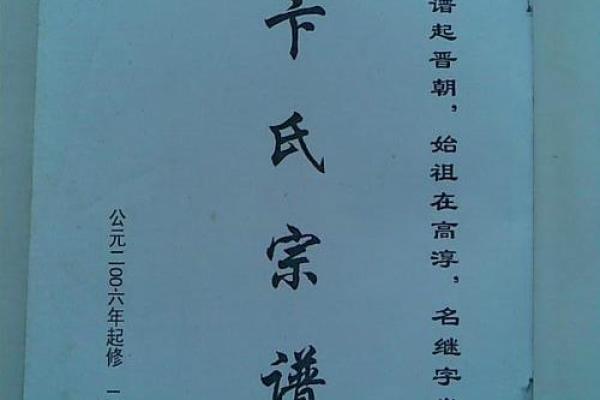 谱起晋朝，始祖在高淳，名继字
卞氏宗谱
公元二〇〇六年起修 一